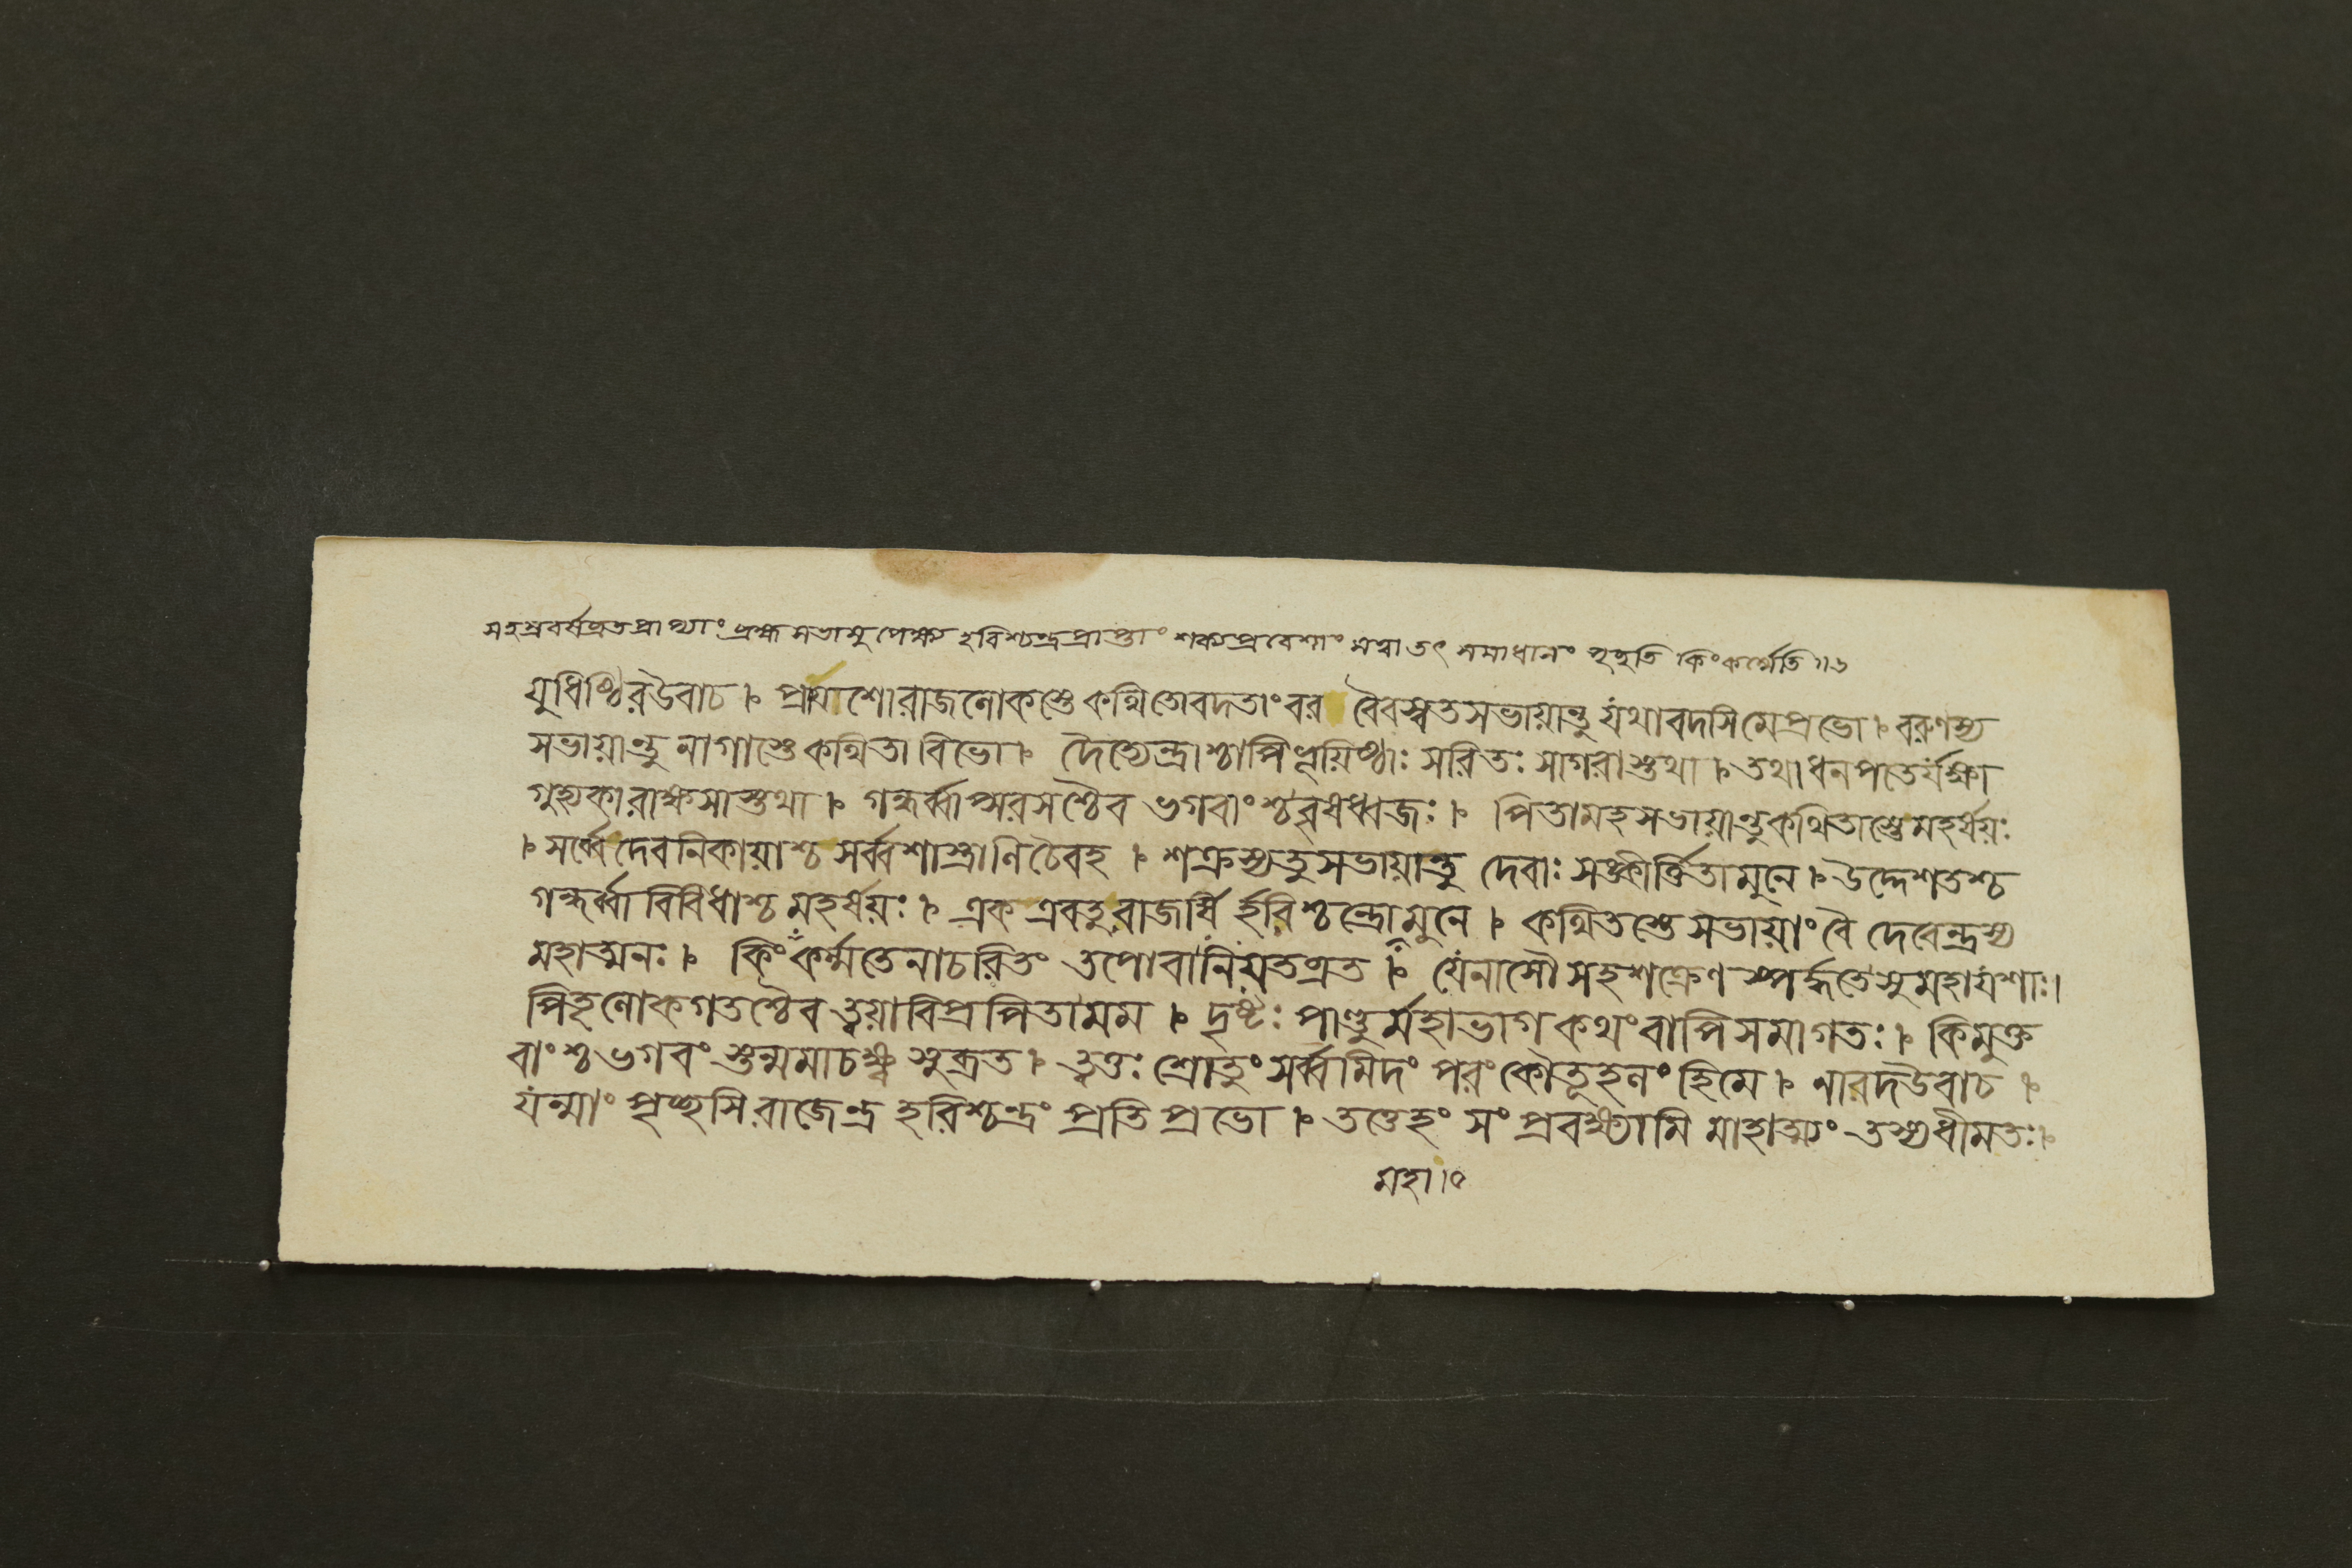 সহস্রবর্ষব্রতপ্রাপ্যাং ব্রহ্মসভামুপেক্ষ্য হরিশ্চন্দ্রপ্রাপ্তাং শক্রপ্রবেশাং মত্বা তৎ সমাধানং পৃচ্ছতি কিংকর্ম্মেতি ॥৬
যুধিষ্ঠিরউবাচ । প্রায়াশোরাজলোকস্তে কথিতোবদতাংবর বৈবস্বতসভায়ান্তু যথাবদসিমেপ্রভো । বরুণস্য
সভায়ান্তু নাগাস্তেকথিতা বিভো । দৈত্যেন্দ্রাশ্চাপিভূয়িষ্ঠাঃ সরিতঃ সাগরাস্তথা । তথাধনপতের্যক্ষা
গুহ্যকারাক্ষসাস্তথা । গন্ধর্ব্বাপ্সরসশ্চৈব ভগবাংশ্চবৃষধ্বজঃ । পিতামহসভায়ান্তুকথিতাস্তেমহর্ষয়ঃ
। সর্ব্বেদেবনিকায়াশ্চ সর্ব্বশাস্ত্রাণিচৈবহ । শক্রস্যতুসভায়ান্তু দেবাঃ সঙ্কীর্ত্তিতামুনে । উদ্দেশতশ্চ
গন্ধর্ব্বা বিবিধাশ্চ মহর্ষয়ঃ । এক এবতুরাজর্ষি র্হরিশ্চন্দ্রোমুনে । কথিতস্তেসভায়াং বৈ দেবেন্দ্রস্য
মহাত্মনঃ । কিং কর্ম্মতেনাচরিতং তপোবানিয়তব্রত । যেনাসৌ সহশক্রেণ স্পর্দ্ধতেসুমহাযশাঃ।
পিতৃলোকগতশ্চৈব ত্বয়াবিপ্রপিতামম । দৃষ্টঃ পাণ্ডুর্মহাভাগ কথংবাপিসমাগতঃ । কিমুক্ত
বাংশ্চভগবং স্তন্মমাচক্ষ্ব সুব্রত । ত্বত্তঃ শ্রোতুং সর্ব্বমিদং পরংকৌতূহলংহিমে । নারদউবাচ ।
যন্মাং পৃচ্ছসিরাজেন্দ্র হরিশ্চন্দ্রং প্রতি প্রভো । তত্তেহং সংপ্রবক্ষ্যামি মাহাত্ম্যং তস্যধীমতঃ।
মহা।০